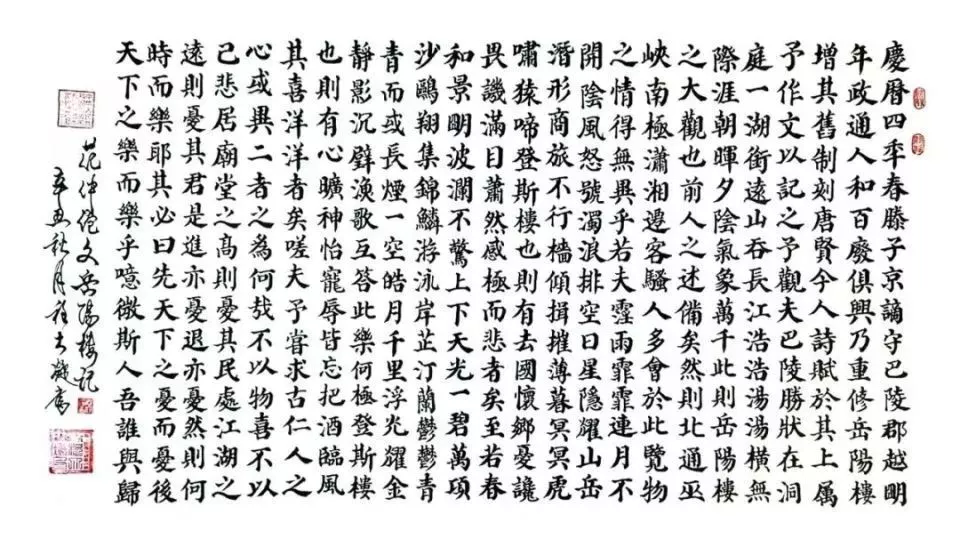 慶曆四年春滕子京謫守巴陵郡越明
年政通人和百廢俱興乃重修岳陽樓
增其舊制刻唐賢今人詩賦於其上属
予作文以記之予觀夫巴陵勝狀在洞
庭一湖銜遠山吞長江浩浩湯湯橫無
際涯朝暉夕陰氣象萬千此則岳陽樓
之大觀也前人之述備矣然則北通巫
峽南極瀟湘遷客騷人多會於此覽物
之情得無異乎若夫霪雨霏霏連月不
開陰風怒號濁浪排空日星隱耀山岳
潛形商旅不行檣傾揖摧薄暮冥冥虎
嘯猿啼登斯樓也則有去國懷鄉憂讒
畏譏滿目蕭然感極而悲者矣至若春
和景明波瀾不驚上下天光一碧萬頃
沙鷗翔集錦鱗游泳岸芷汀蘭鬱鬱青
青而或長煙一空皓月千里浮光耀金
靜影沉璧漁歌互答此樂何極登斯樓
也則有心曠神怡寵辱皆忘把酒臨風
其喜洋洋者矣嗟夫予嘗求古仁人之
心或異二者之為何哉不以物喜不以
己悲居廟堂之高則憂其民處江湖之
遠則憂其君是進亦憂退亦憂然則何
時而樂耶其必曰先天下之憂而憂後
天下之樂而樂乎噫微斯人吾誰與歸
范仲淹文岳陽樓記
辛丑秋月